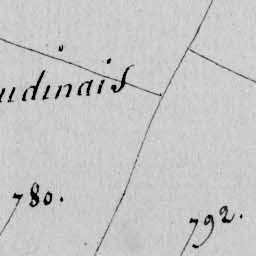 udinais
780.
792.